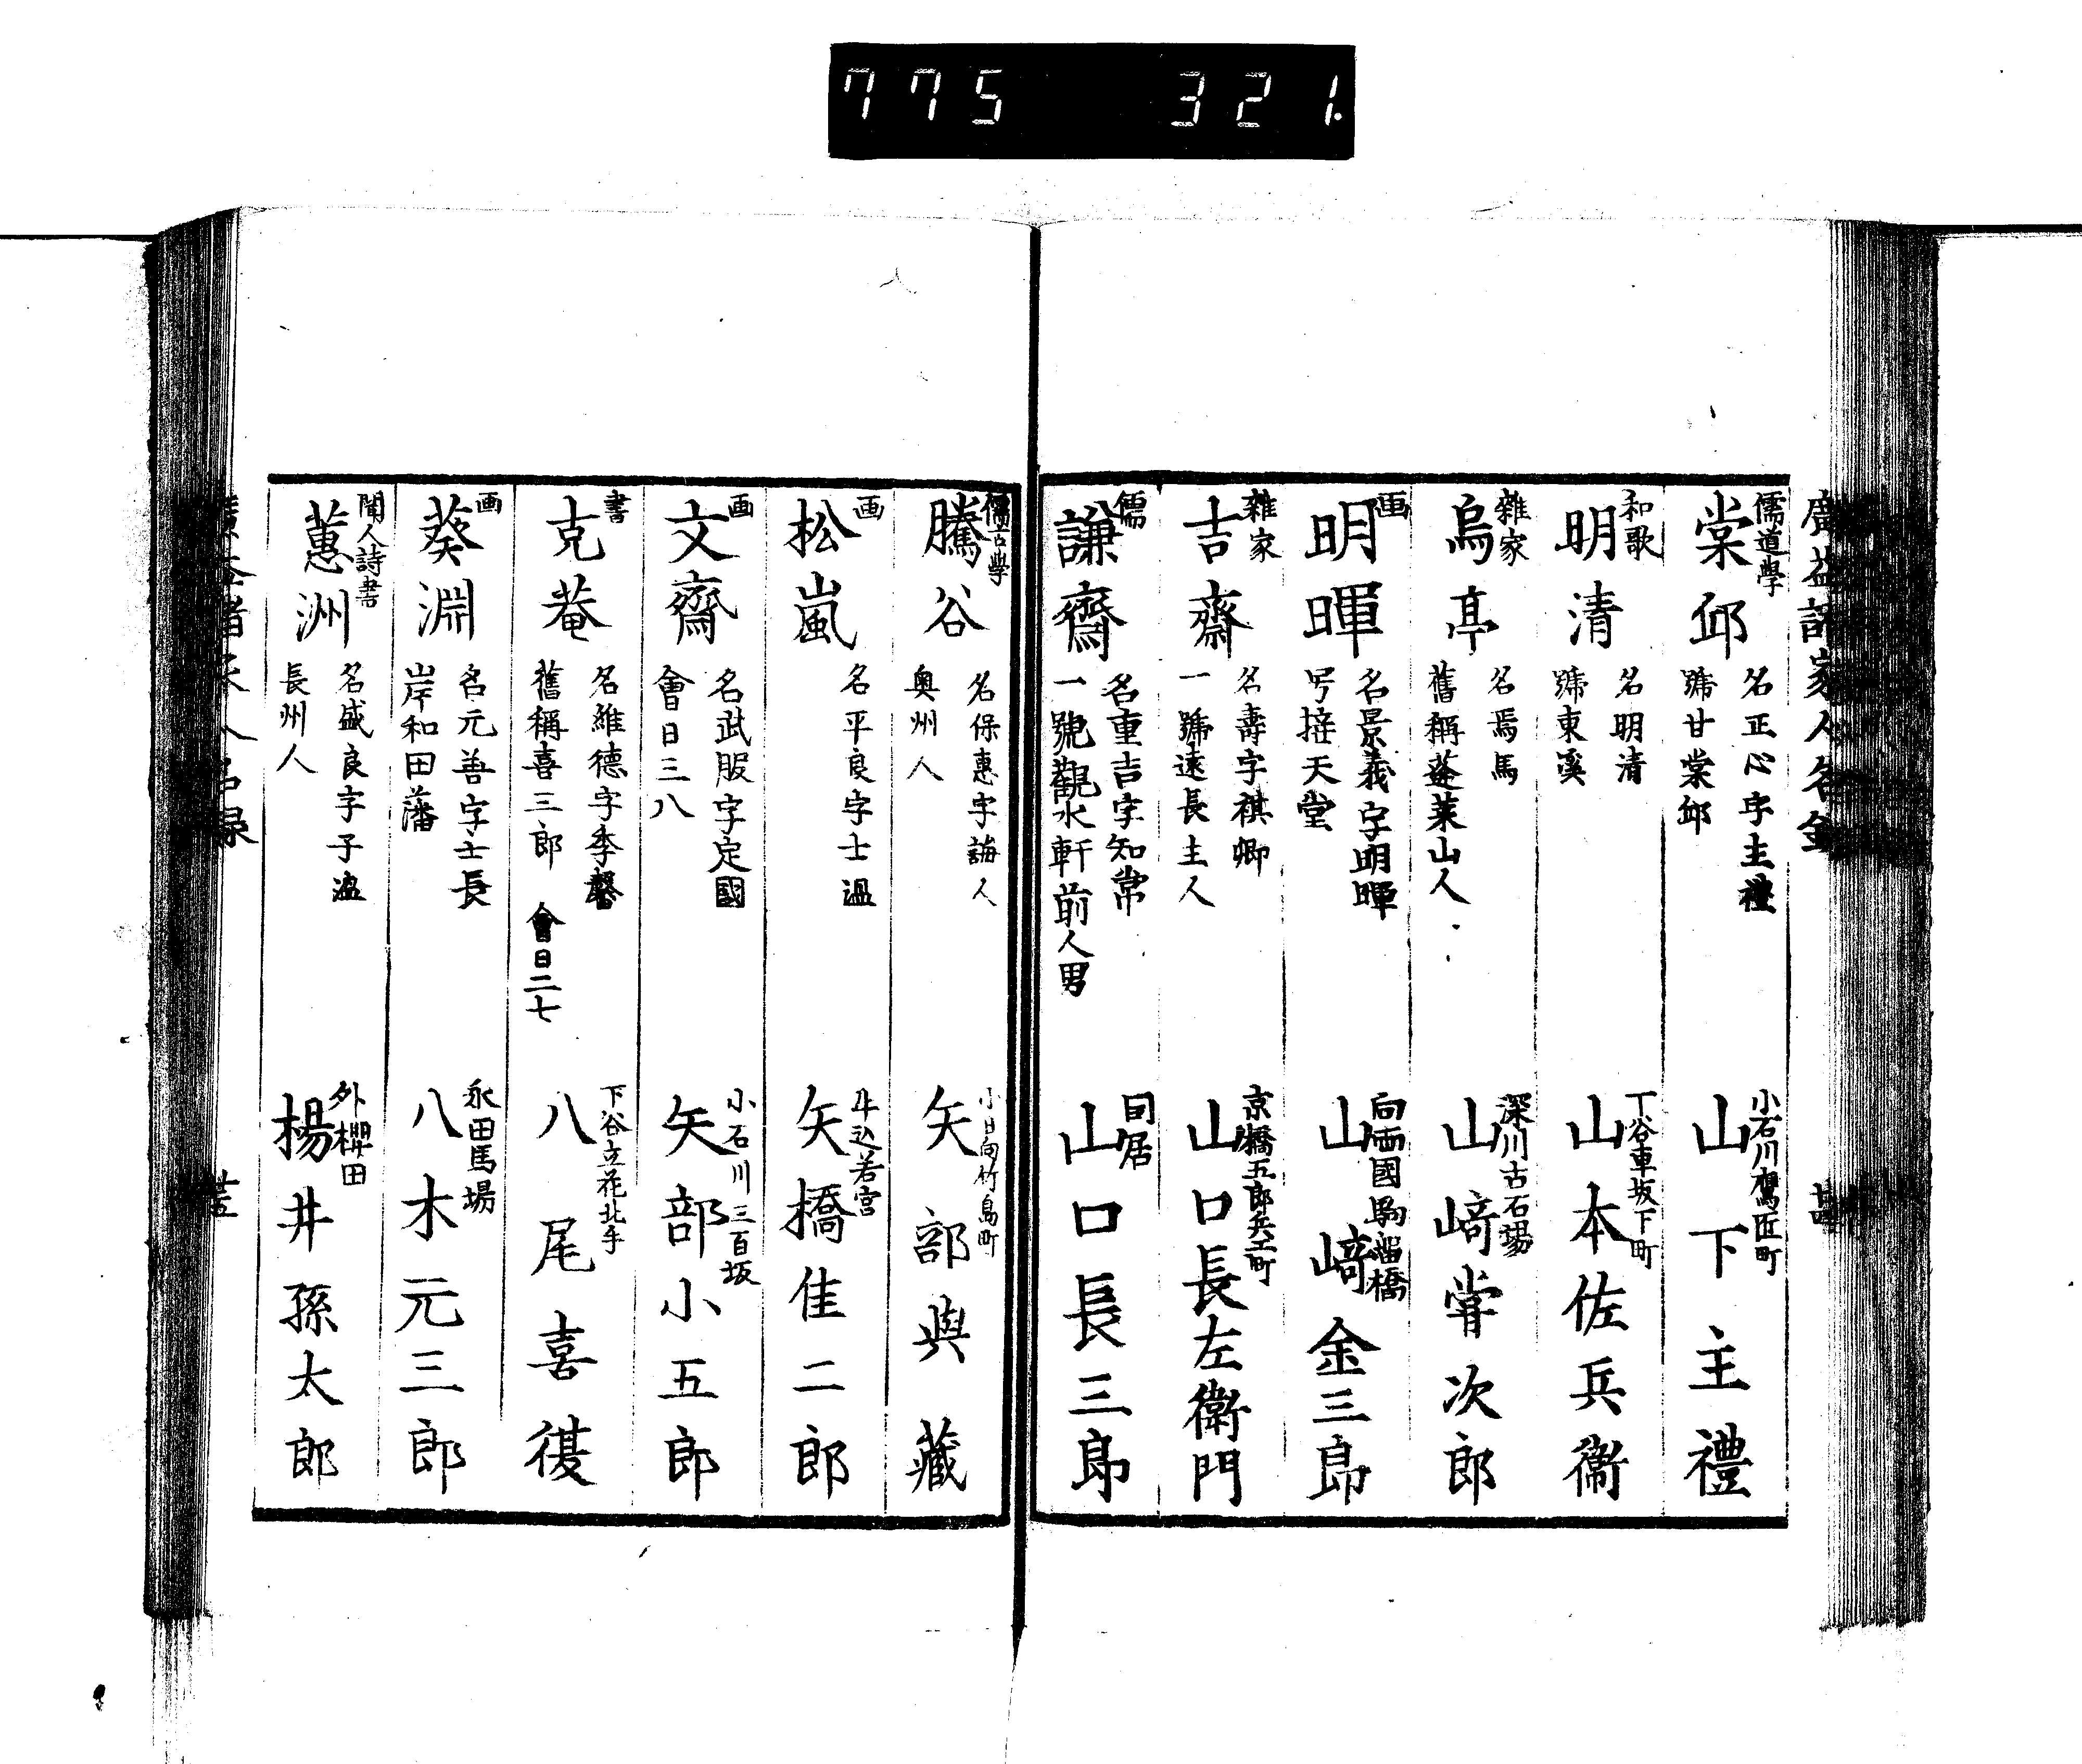 775 321.
廣益諸家人名録
儒道學
棠邱
名正心字主禮
號甘棠邱
小石川鷹匠町
山下主禮
和歌
明清
名明清
號東溪
下谷車坂下町
山本佐兵衞
雜家
烏亭
名焉馬
舊稱蓬萊山人
深川古石場
山﨑甞次郎
画
明暉
名景義字明暉
号接天堂
向両國駒留橋
山﨑金三郎
雜家
吉齋
名壽字祺卿
一號遠長主人
京橋五郎兵エ町
山口長左衞門
儒
謙齋
名重吉字知常
一號觀水軒前人男
同居
山口長三郎
儒古學
騰谷
名保惠字誨人
奥州人
小日向竹島町
矢部與藏
画
松嵐
名平良字士温
牛込若宮
矢橋佳二郎
画
文齋
名武服字定國
會日三八
小石川三百坂
矢部小五郎
書
克菴
名維德字季馨
舊稱喜三郎 會日二七
下谷立花北手
八尾喜護
画
葵淵
名元善字士長
岸和田藩
永田馬場
八木元三郎
聞人詩書
蕙洲
名盛良字子温
長州人
外櫻田
楊井孫太郎